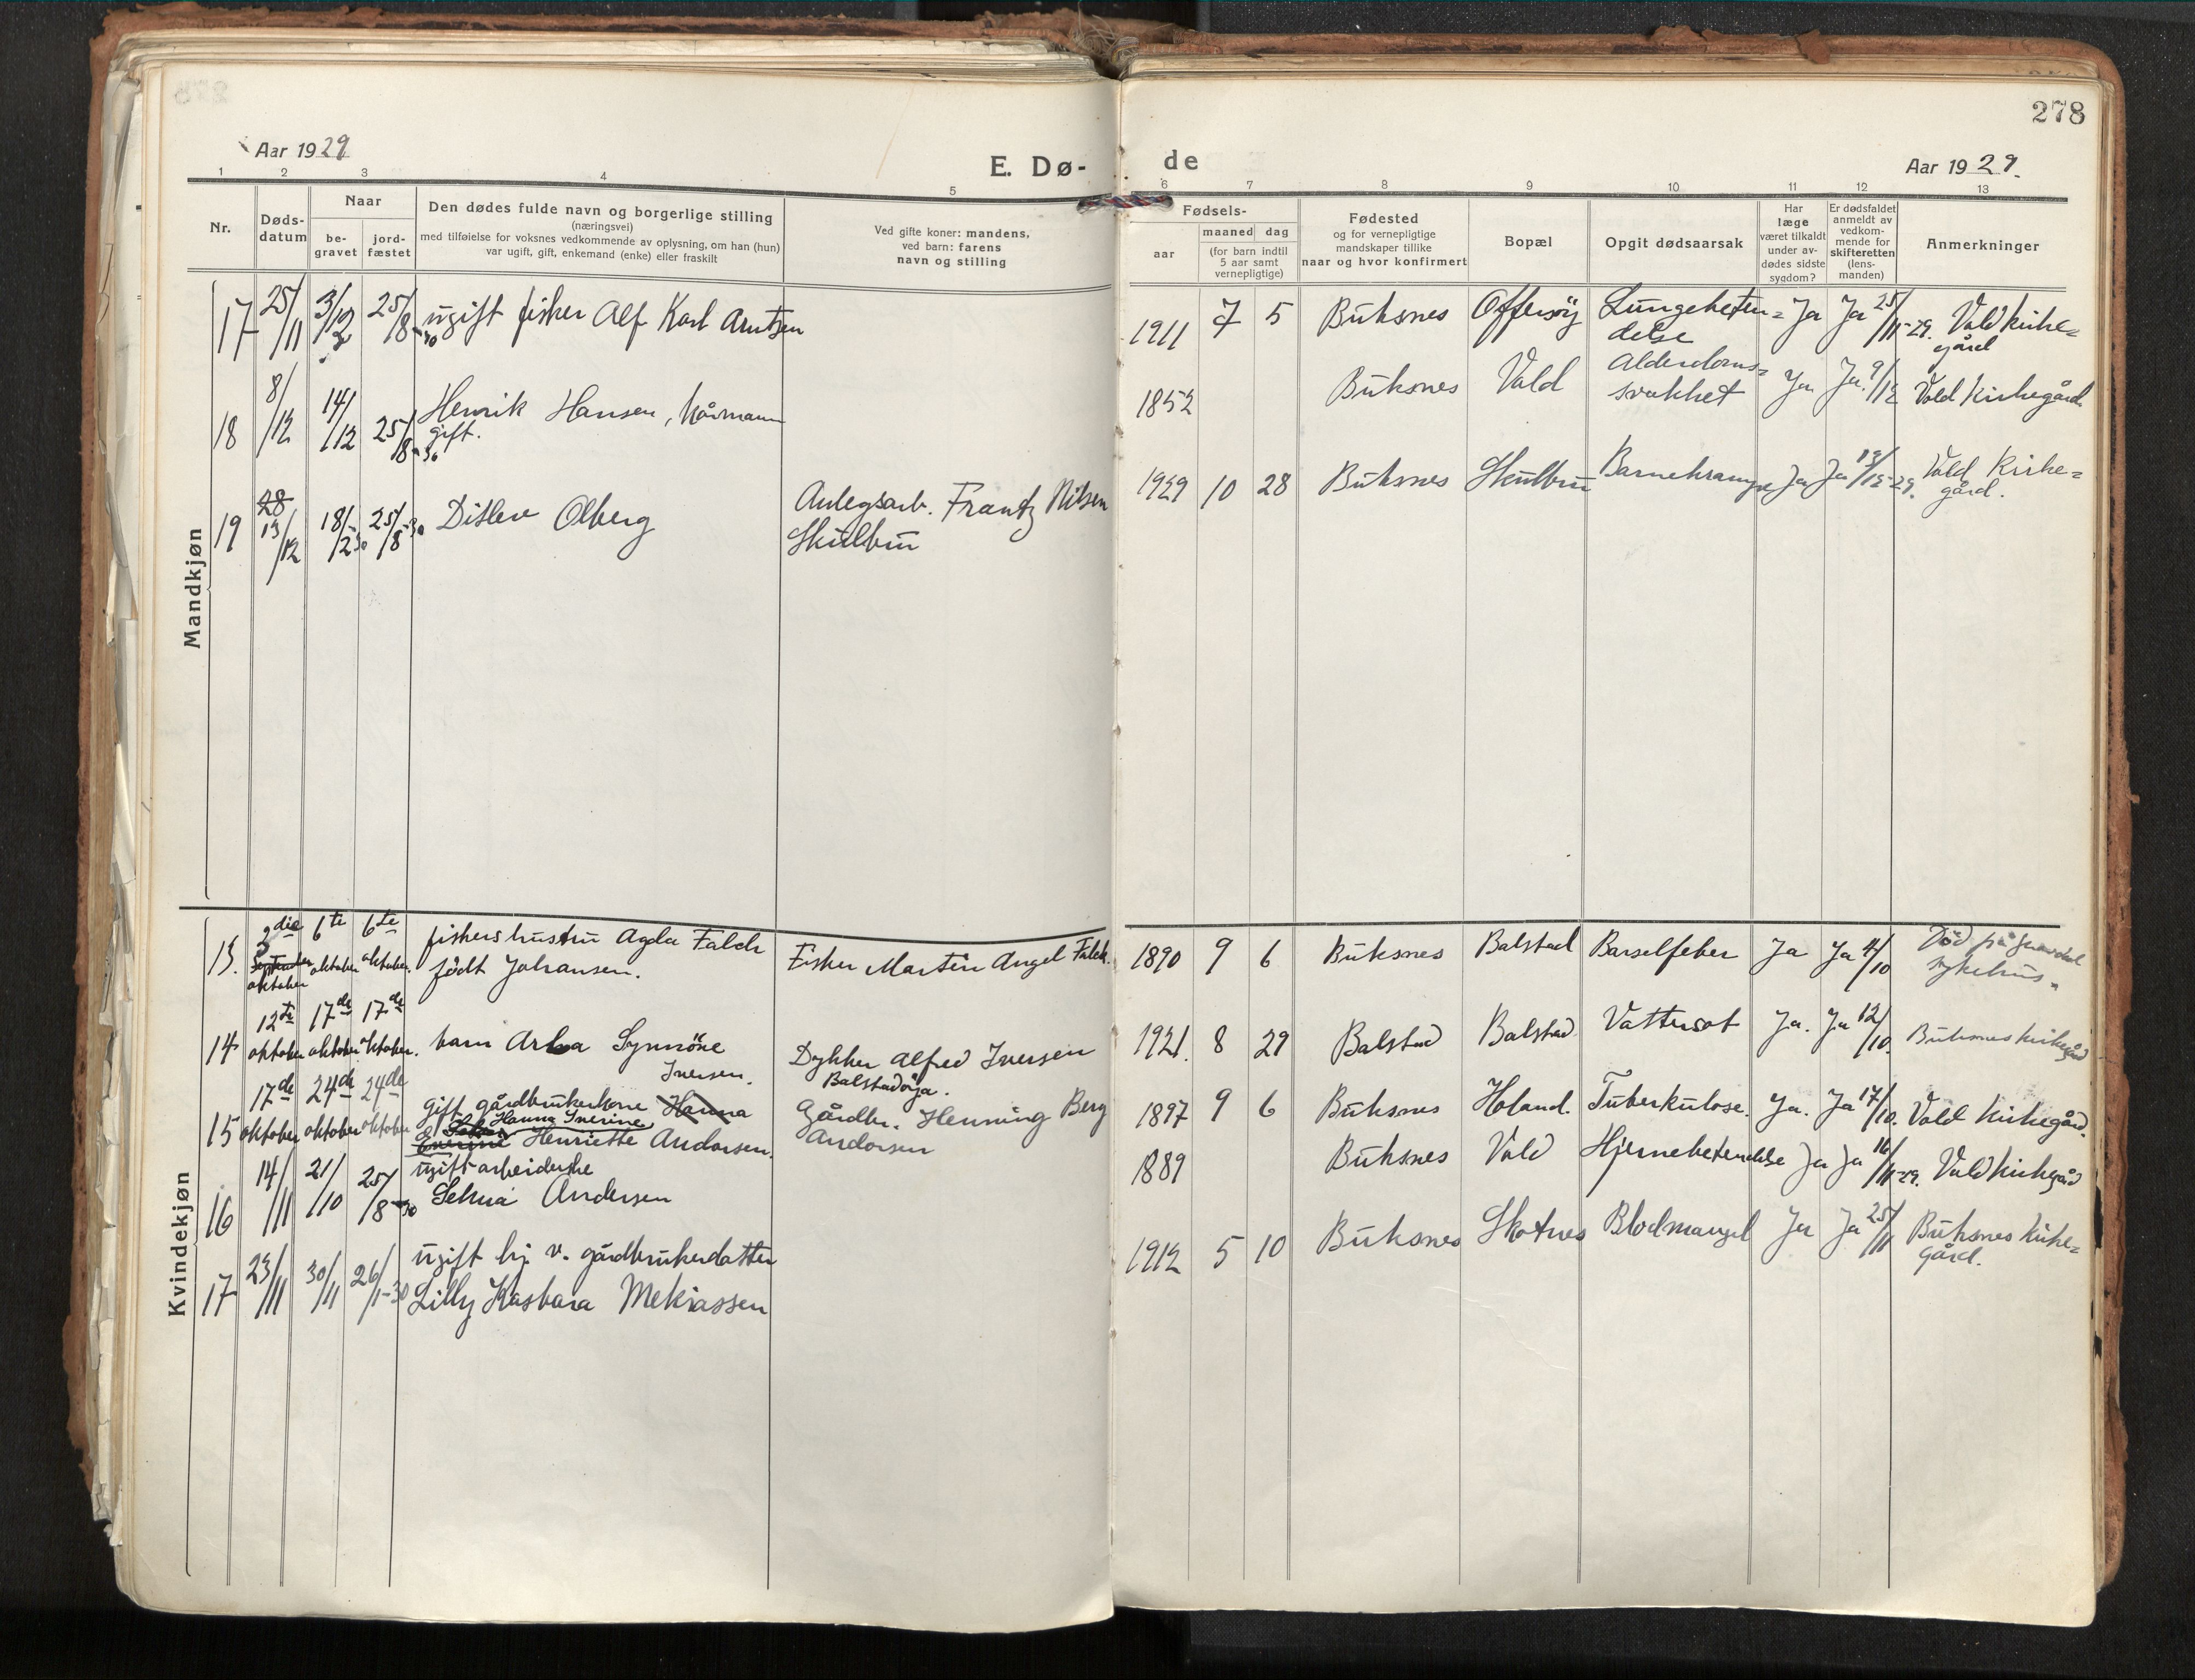 278
Aar 1929
E. Dø-
de
Aar 1929.
1 2 3 4 5 6 7 8 9 10 11 12 13
Nr.
Døds-
datum
Naar
be-
gravet
jord-
fæstet
Den dødes fulde navn og borgerlige stilling
(næringsvei)
med tilføielse for voksnes vedkommende av oplysning, om han (hun)
var ugift, gift, enkemand (enke) eller fraskilt
Ved gifte koner: mandens,
ved barn: farens
navn og stilling
Fødsels-
aar
maaned dag
(for barn indtil
5 aar samt
vernepligtige)
Fødested
og for vernepligtige
mandskaper tillike
naar og hvor konfirmert
Bopæl
Opgit dødsaarsak
Har
læge
været tilkaldt
under av-
dødes sidste
sygdom?
Er dødsfaldet
anmeldt av
vedkom-
mende for
skifteretten
(lens-
manden)
Anmerkninger
Mandkjøn
17 25/11 3/12 25/8-30 ugift fisker Alf Karl Arntzen 1911 7 5 Buksnes Offersöy Lungebeten=
delse Ja Ja 25/11-29. Vold kirke=
gård
18 8/12 14/12 25/8-30 Henrik Hansen, kårmann
gift. 1852 Buksnes Vold Alderdoms=
svakhet Ja Ja. 9/12 Vold Kirkegård
19 28
13/12 18/12 25/8-30 Ditlev Olberg Anlegsarb. Frantz Nilsen
Skulbru 1929 10 28 Buksnes Skulbru Barnekrampe Ja Ja 13/12-29. Vold Kirke=
gård.
Kvindekjøn
13. 3die
September
oktober 6te
oktober 6te
oktober. fiskers hustru Agda Falch
födt Johansen. Fisker Martin Angel Falch. 1890 9 6 Buksnes Balstad Barselfeber Ja Ja 4/10 Död på
sykehus.
14 12te
oktober 17de
oktober 17de
oktober. barn Synnöve
Iversen. Dykker Alfred Iversen
Balstadöya. 1921. 8 29 Balstad Balstad Vattersot Ja. Ja 12/10. Buksnes kirkegård
15 17de
oktober 24de
oktober 24de
oktober gift gårdbrukerkone Hanna
Hanna Inerine
Henriette Andorsen. Gårdbr. Henning Berg
Andorsen 1897 9 6 Buksnes Holand. Tuberkulose. Ja. Ja 17/10. Vold kirkegård.
16 14/11 21/10 25/8-30 ugift arbeiderske
Selma Andersen 1889 Buksnes Vold Hjernebetendelse Ja Ja 16/11-29. Vold kirkegård
17 23/11 30/11 26/1-30 ugift hj. v. gårdbrukerdatter
Lilly Kasbara Mekiassen 1912 5 10 Buksnes Skotnes Blodmangel Ja Ja 25/11 Buksnes kirke=
gård.